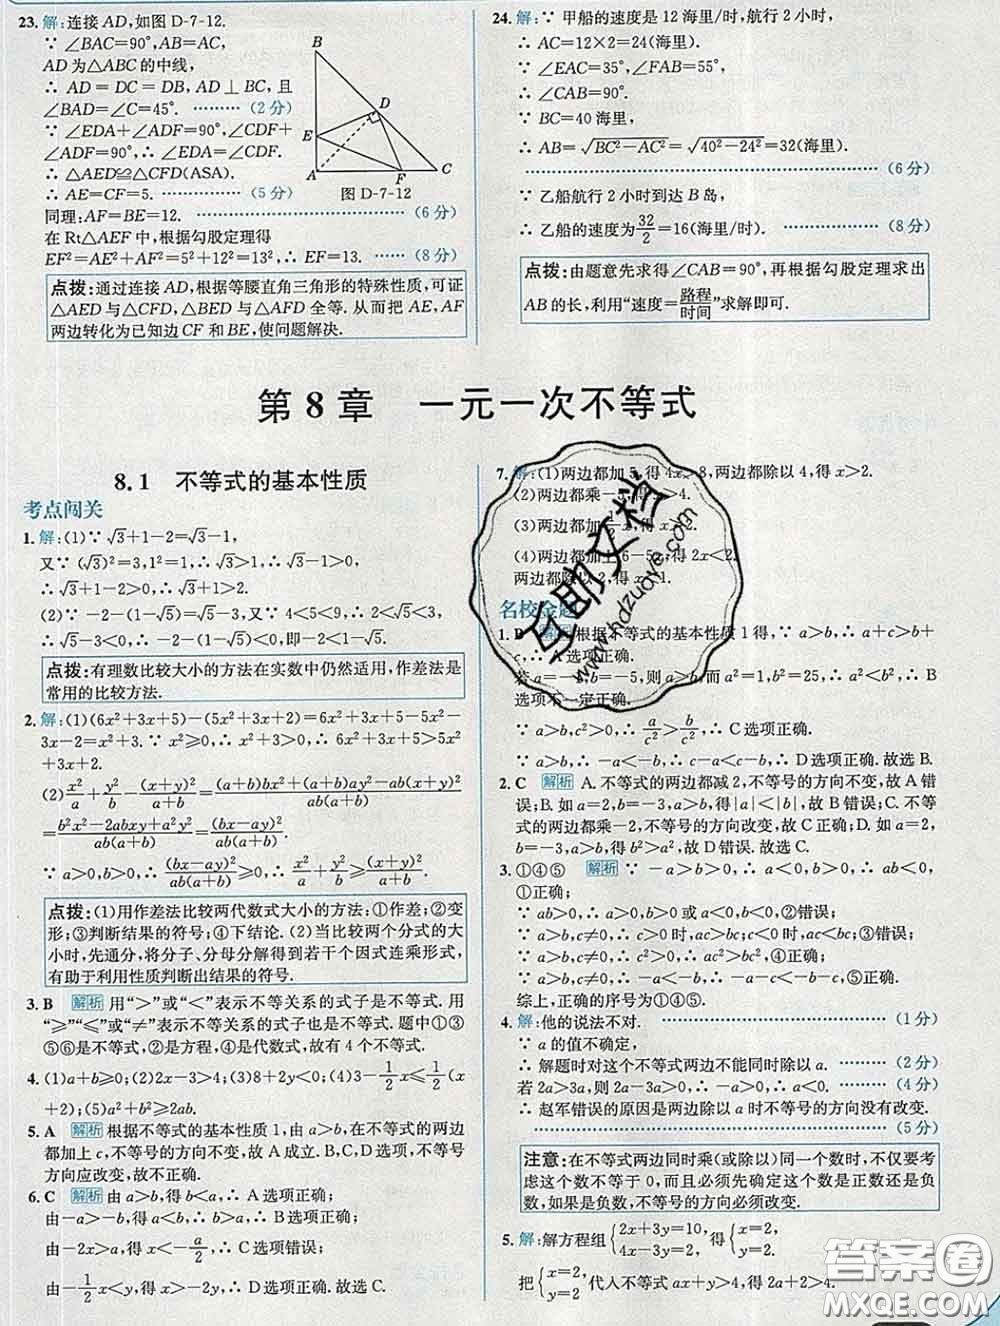 23. 解:连接 AD,如图 D-7-12.
∵ ∠BAC=90°,AB=AC,
AD 为△ABC 的中线,
∴ AD = DC = DB, AD ⊥ BC, 且
∠BAD=∠C=45°. ……… (2 分)
∵ ∠EDA+∠ADF=90°,∠CDF+
∠ADF=90°,∴ ∠EDA=∠CDF.
∴ △AED≌△CFD(ASA).
∴ AE=CF=5. ……… (5 分)
B
D
E
A
F
C
图 D-7-12
同理:AF=BE=12. ……… (6 分)
在 Rt△AEF 中,根据勾股定理得
EF²=AE²+AF²=5²+12²=13²,∴ EF=13. ……… (8 分)
点拨:通过连接 AD,根据等腰直角三角形的特殊性质,可证
△AED 与△CFD,△BED 与△AFD 全等. 从而把 AE,AF
两边转化为已知边 CF 和 BE,使问题解决.
24. 解:∵ 甲船的速度是 12 海里/时,航行 2 小时,
∴ AC=12×2=24(海里).
∵ ∠EAC=35°,∠FAB=55°,
∴ ∠CAB=90°.
∵ BC=40 海里,
∴ AB=√(BC²-AC²)=√(40²-24²)=32(海里).
……… (6 分)
∵ 乙船航行 2 小时到达 B 岛,
∴ 乙船的速度为32/2=16(海里/时). ……… (8 分)
点拨:由题意先求得∠CAB=90°,再根据勾股定理求出
AB 的长,利用“速度=路程/时间”求解即可.
第 8 章 一元一次不等式
8.1 不等式的基本性质
考点闯关
1. 解:(1)∵ √3+1-2=√3-1,
又∵ (√3)²=3,1²=1,∴ √3>1,
∴ √3+1-2>0,∴ √3+1>2.
(2)∵ -2-(1-√5)=√5-3,又∵ 4<5<9,∴ 2<√5<3,
∴ √5-3<0,∴ -2-(1-√5)<0,∴ -2<1-√5.
点拨:有理数比较大小的方法在实数中仍然适用,作差法是
常用的比较方法.
2. 解:(1)(6x²+3x+5)-(5x²+3x+2)=6x²+3x+5-5x²
-3x-2=x²+3. ∵ x²≥0,∴ x²+3>0,∴ 6x²+3x+5>5x²
+3x+2.
(2)x²/a+y²/b-(x+y)²/(a+b)=(a+b)bx²+(a+b)ay²-ab(x+y)²/ab(a+b)
=b²x²-2abxy+a²y²/ab(a+b)=(bx-ay)²/ab(a+b).
∵ a>0,b>0,∴ (bx-ay)²/ab(a+b)≥0,∴ x²/a+y²/b≥(x+y)²/(a+b).
点拨:(1)用作差法比较两代数式大小的方法:①作差;②变
形;③判断结果的符号;④下结论. (2)当比较两个分式的大
小时,先通分,将分子、分母分解得到若干个因式连乘形式,
有助于利用性质判断出结果的符号.
3. B 解析 用“>”或“<”表示不等关系的式子是不等式. 用
“≥”“≤”或“≠”表示不等关系的式子也是不等式. 题中①③
⑤⑥是不等式,②是方程,④是代数式,故有 4 个不等式.
4. (1)a+b≥0;(2)2x-3>4;(3)8+2y<0;(4)3-1/2x≤1/2(x
+2);(5)a²+b²≥2ab.
5. A 解析 根据不等式的基本性质 1,由 a>b,在不等式的两边
都加上 c,不等号的方向不变,故 A 成立. B、C、D 选项,不等号
方向应改变,故不正确.
6. C 解析 由 a>b,得 b<a,∴ A 选项正确;
由-a>-b,得 a<b,∴ B 选项正确;
由-2x>a,得 x<-a/2,∴ C 选项错误;
由-1/2x<y,得 x>-2y,∴ D 选项正确. 故选 C.
7. 解:(1)两边都加 5,得 4x>8,两边都除以 4,得 x>2.
(2)两边都乘-5,得 >4.
(3)两边都加
(4)两边都加上 6-5x,得 2x<2.
两边都除以 2,得 x<1.
名校金题
1. B 解析 根据不等式的基本性质 1 得,∵ a>b,∴ a+c>b+
c,∴ A 选项正确.
若 a= b=-5,则 a>b,而 a²=1,b²=25,∴ a²<b²,∴ B
选项不一定正确.
∵ a>b,c²>0,∴ a/c²>b/c²,∴ C 选项正确.
∵ a>b,∴ -a<-b,∴ c-a<c-b,∴ D 选项正确. 故选 B.
2. C 解析 A. 不等式的两边都减 2,不等号的方向不变,故 A 错
误;B. 如 a=2,b=-3,a>b,得|a|<|b|,故 B 错误;C. 不等
式的两边都乘-2,不等号的方向改变,故 C 正确;D. 如 a=2,
b=-3,a>b,得 a²<b²,故 D 错误. 故选 C.
3. ①④⑤ 解析 ∵ -a>b>0,∴ a<0,b>0,∴ a<b,
①正确;
∵ ab>0,∴ a>0,b>0 或 a<0,b<0,②错误;
∵ a>b,c≠0,∴ c>0 时,ac>bc;c<0 时,ac<bc,③错误;
∵ a>b,c≠0,∴ c²>0,∴ ac²>bc²,④正确;
∵ a>b>0,∴ -a<-b,∴ -a-2<-b,⑤正确.
综上,正确的序号为①④⑤.
4. 解:他的说法不对. ……… (1 分)
∵ a 的值不确定,
∴ 解题时对这个不等式两边不能同时除以 a. ……… (2 分)
若 2a>3a,则 2a-3a>0,∴ -a>0,∴ a<0. ……… (4 分)
∴ 赵军错误的原因是两边除以 a 时不等号的方向没有改变.
……… (5 分)
注意:在不等式两边同时乘(或除以)同一个数时,不仅要考
虑这个数不等于 0,而且必须先确定这个数是正数还是负
数,如果是负数,不等号的方向必须改变.
5. 解:解方程组{2x+3y=10, 4x-3y=2, 得{x=2, y=2,
把{x=2, y=2 代入不等式 ax+y>4,得 2a+2>4.
互助文档
www.hdzuoye.com
答案圈
MXQE.COM